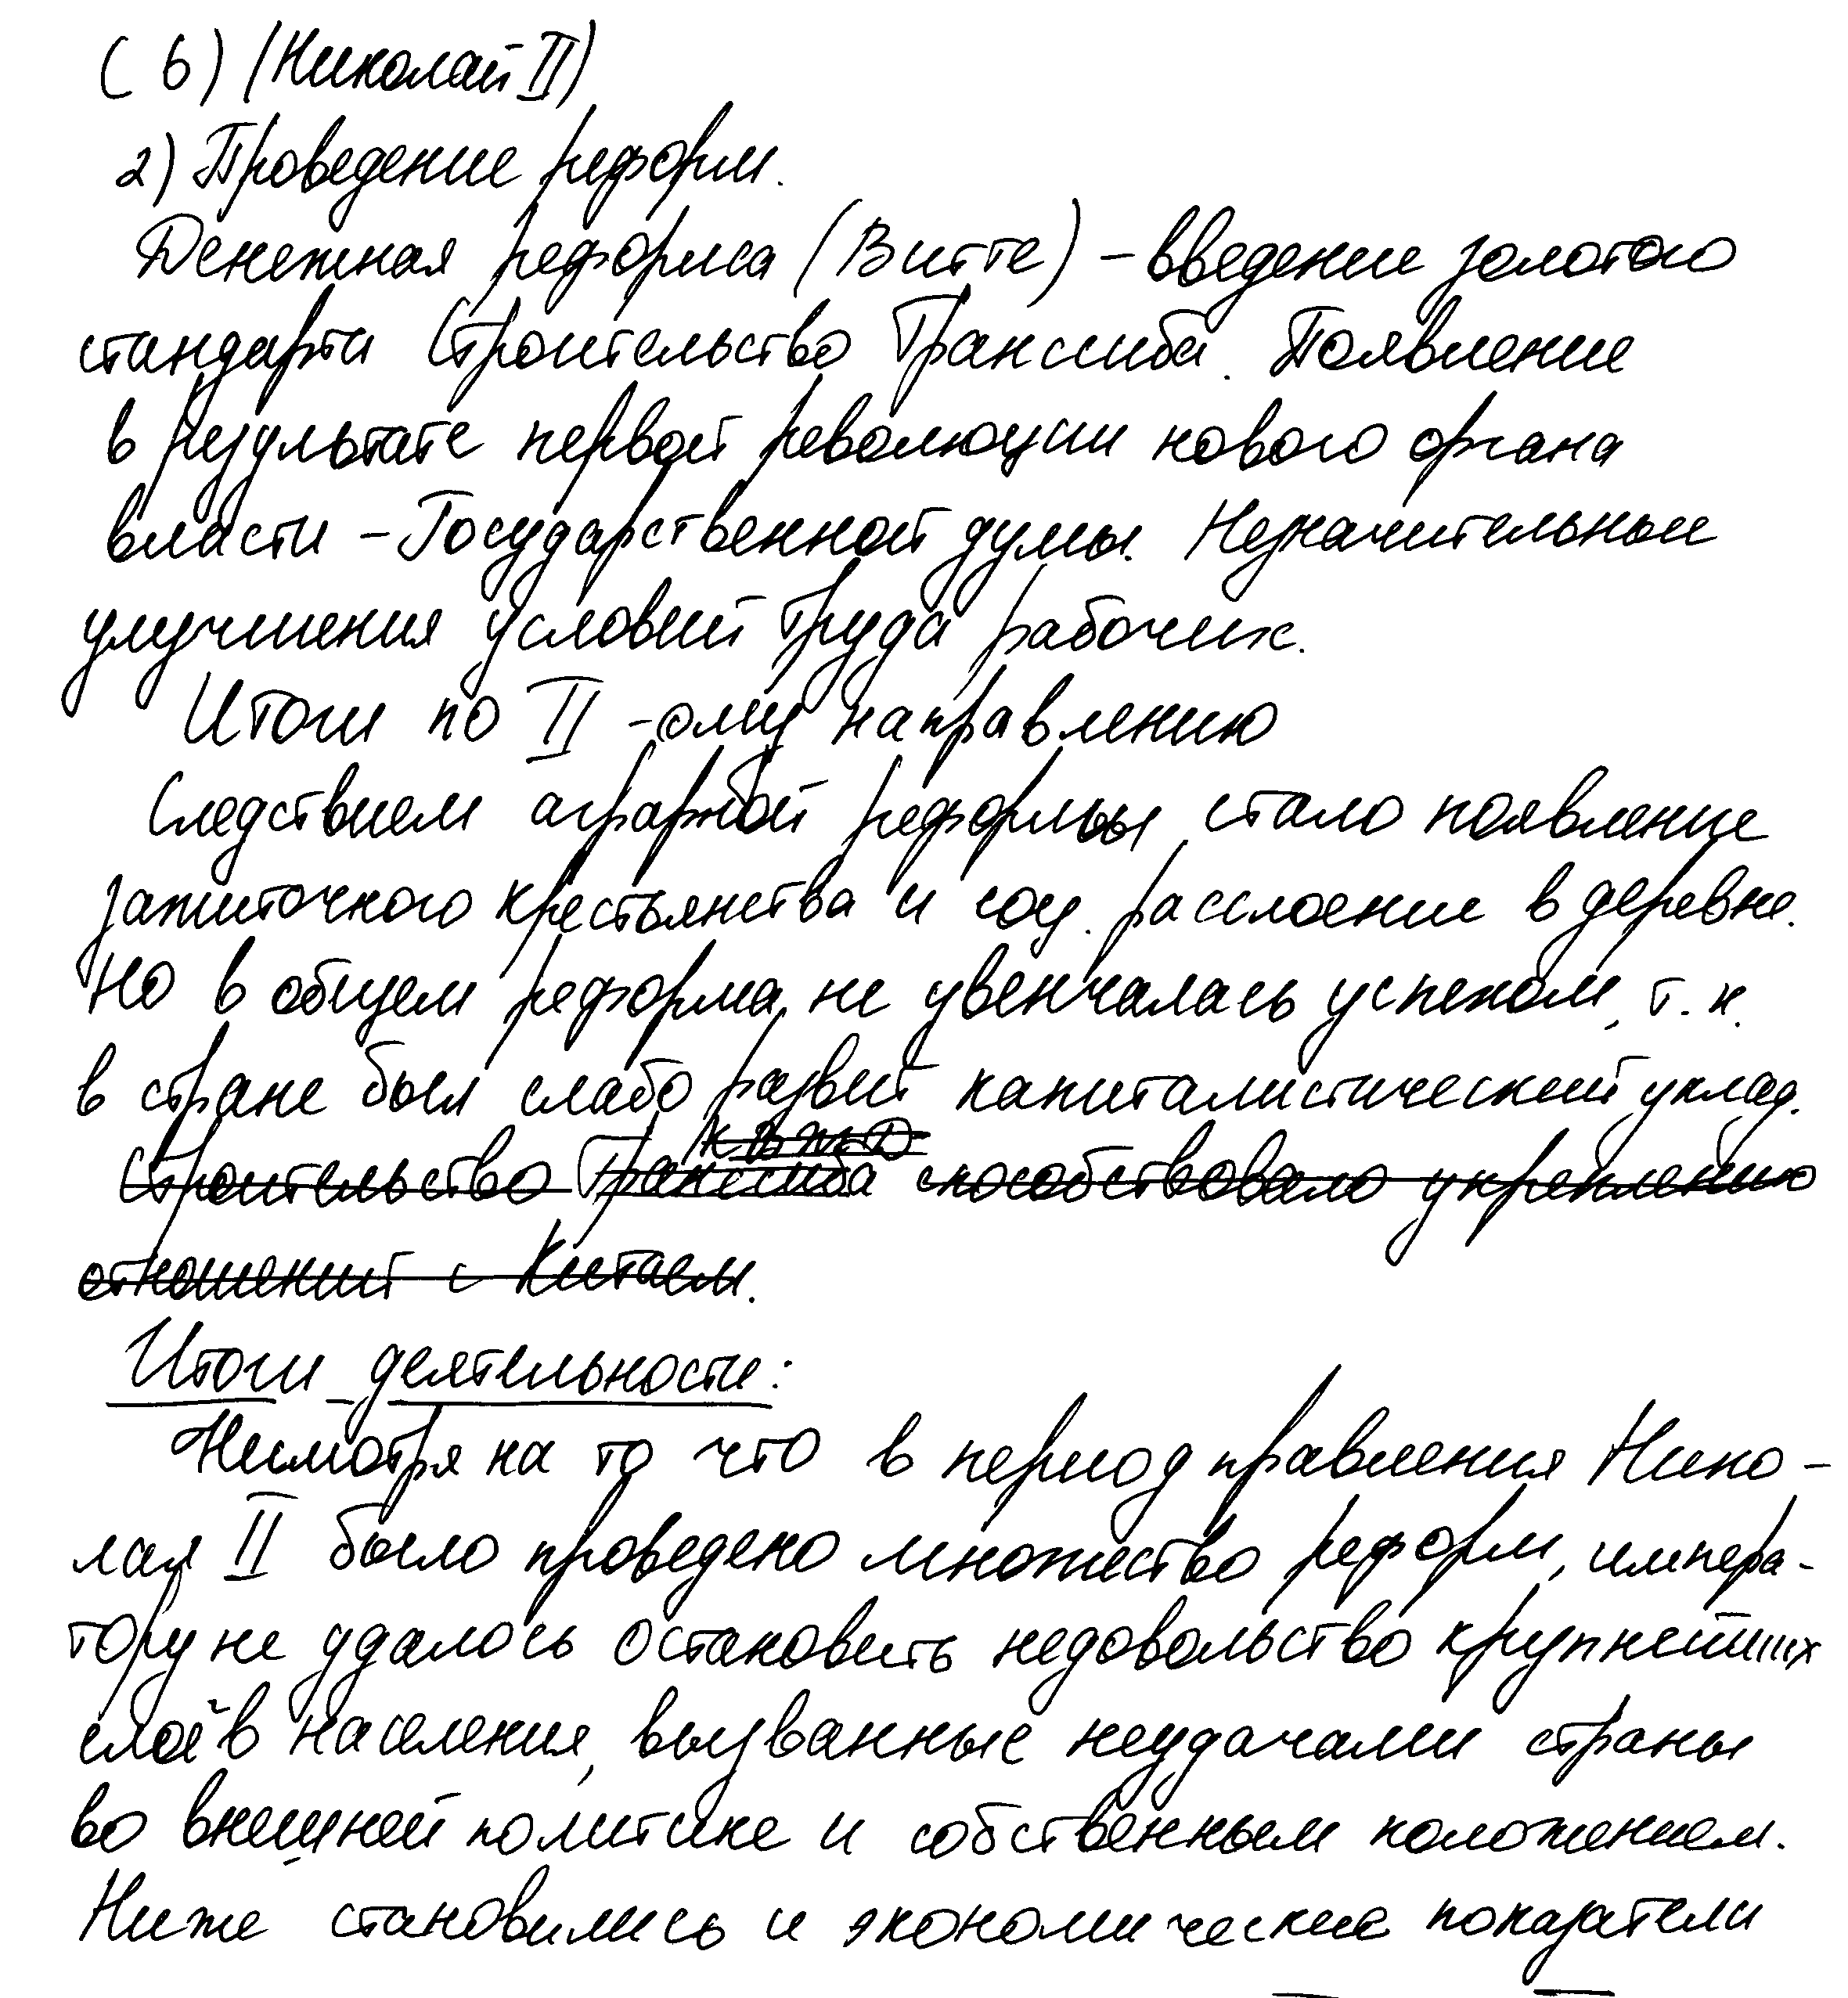 (6) (Николай II)
2) Проведение реформ.
Денежная реформа (Витте) - введение золотого
стандарта Строительство Транссиба. Появление
в результате первой революции нового органа
власти - Государственной думы. Незначительные
улучшения условий труда рабочих.
Итоги по II -ому направлению
Следствием аграрной реформы стало появление
зажиточного крестьянства и соц. расслоение в деревне.
Но в общем реформа не увенчалась успехом, т.к.
в стране был слабо развит капиталистический уклад.
КВЖД
Строительство Транссиба способствовало укреплению
отношений с Китаем.
Итоги деятельности:
Несмотря на то что в период правления Нико-
лая II было проведено множество реформ, импера-
тору не удалось остановить недовольство крупнейших
слоёв населения, вызванные неудачами страны
во внешней политике и собственным положением.
Ниже становились и экономические показатели